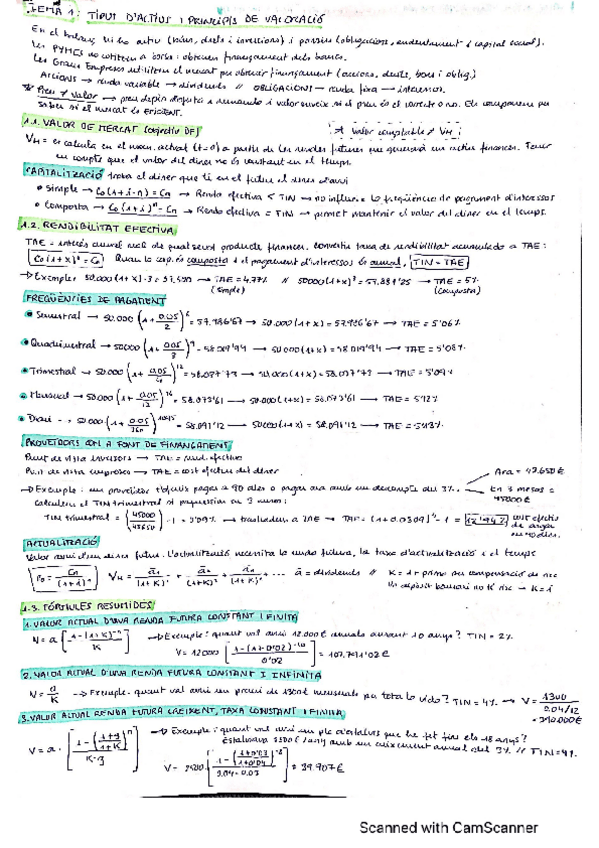 TEMA 1: TIPUS D'ACTIUS I PRINCIPIS DE VALORACIÓ
En el balanç hi ha actiu (béns, drets i inversions) i passiu (obligacions, endeutament i capital social).
Les PYMES no cotitzen a borsa: obtenen finançament dels bancs.
Les Grans Empreses utilitzen el mercat per obtenir finançament (accions, deute, bons i oblig.)
ACCIONS → renda variable → dividends // OBLIGACIONS → renda fixa → interessos.
Preu ≠ Valor → preu depèn d'oferta i demanda i valor serveix si el preu és el correcte o no. Els comparem per
saber si el mercat és eficient.
1.1. VALOR DE MERCAT (objectiu DF)
* Valor comptable ≠ VM
VM = es calcula en el mom. actual (t=0) a partir de les rendes futures que generarà un actiu financer. Tenir
en compte que el valor del diner no és constant en el temps.
CAPITALITZACIÓ troba el diner que té en el futur el diner d'avui
• Simple → Co(1+i·n) = Cn → Renda efectiva < TIN → no influeix la freqüència de pagament d'interessos
• Composta → Co(1+i)^n = Cn → Renda efectiva = TIN → permet mantenir el valor del diner en el temps.
1.2. RENDIBILITAT EFECTIVA
TAE = interès anual real de qualsevol producte financer. Convertir taxa de rendibilitat acumulada a TAE:
Quan la cap. és composta i el pagament d'interessos és anual, TIN = TAE
→ Exemple: 50.000(1+x)·3 = 57.500 → TAE = 4,77% // 50000(1+x)³ = 57.881'25 → TAE = 5%
(simple) (composta)
FREQÜÈNCIES DE PAGAMENT
• Semestral → 50.000 (1+0,05/2)^6 = 57.986'67 → 50.000(1+x)³ = 57.986'67 → TAE = 5'06%
• Quadrimestral → 50000 (1+0,05/3)^9 = 58.019'94 → 50.000(1+x)³ = 58.019'94 → TAE = 5'08%
• Trimestral → 50.000 (1+0,05/4)^12 = 58.037'73 → 50.000(1+x)³ = 58.037'73 → TAE = 5'09%
• Mensual → 50.000 (1+0,05/12)^36 = 58.073'61 → 50.000(1+x)³ = 58.073'61 → TAE = 5'12%
• Diari → 50.000 (1+0,05/365)^1095 = 58.091'12 → 50000(1+x)³ = 58.091'12 → TAE = 5'13%
PROVEÏDORS COM A FONT DE FINANÇAMENT
Punt de vista inversors → TAE = rend. efectiva
Punt de vista empreses → TAE = cost efectiu del diner
Ara = 43.650€
→ Exemple: un proveïdor t'ofereix pagar a 90 dies o pagar ara amb un descompte del 3%.
En 3 mesos = 45000€
TIN trimestral = (45000/43650) - 1 = 3'09% → traslladem a TAE → TAE = (1+0.0309)^4 - 1 = 12'94%
ACTUALITZACIÓ
Valor avui d'un diner futur. L'actualització necessita la renda futura, la taxa d'actualització i el temps
Co = Cn/(1+i)^n
a = dividends //
1.3. FÓRMULES RESUMIDES
1. VALOR ACTUAL D'UNA RENDA FUTURA CONSTANT I FINITA
V = a [1-(1+K)^-n / K] → Exemple: quant val avui 12.000€ anuals durant 10 anys? TIN = 2%
V = 12000 [1-(1+0'02)^-10 / 0'02] = 107.791'02€
2. VALOR ACTUAL D'UNA RENDA FUTURA CONSTANT I INFINITA
V = a/K → Exemple: quant val avui un premi de 1300€ mensuals per tota la vida? TIN = 4% → V = 1300 / 0.04/12
= 390.000€
3. VALOR ACTUAL RENDA FUTURA CREIXENT, TAXA CONSTANT I FINITA
V = a · [1 - ((1+g)/(1+K))^n / K-g]
→ Exemple: quant val avui un pla d'estalvis que he fet fins els 18 anys?
= 39.907€
Scanned with CamScanner